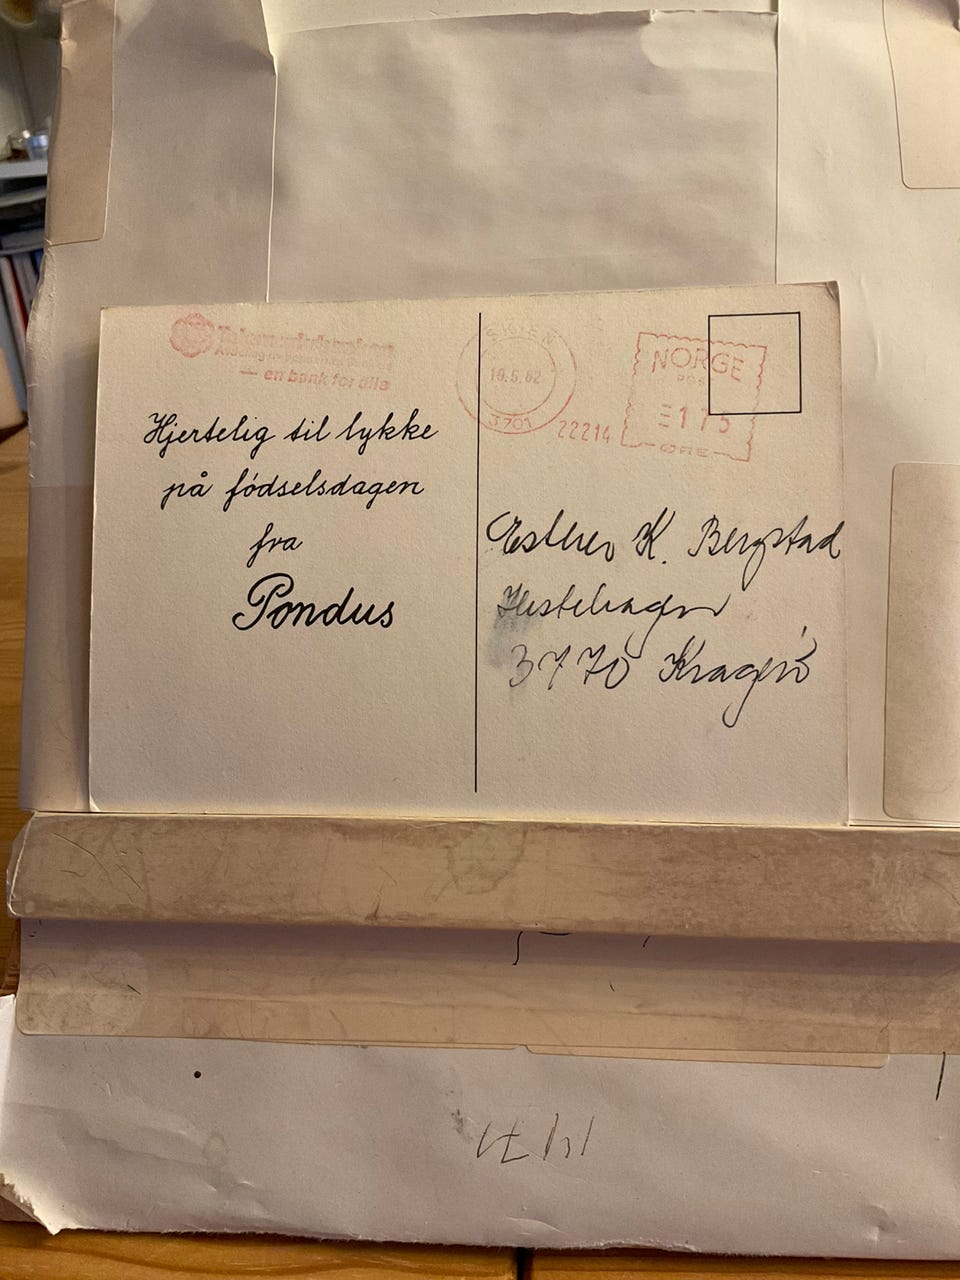 — en bank for alle
Hjertelig til lykke
på fødselsdagen
fra
Pondus
SKIEN
19.5.82
3701
22214
NORGE
POST
175
ØRE
Esther K. Bergstad
3770 Kragerö